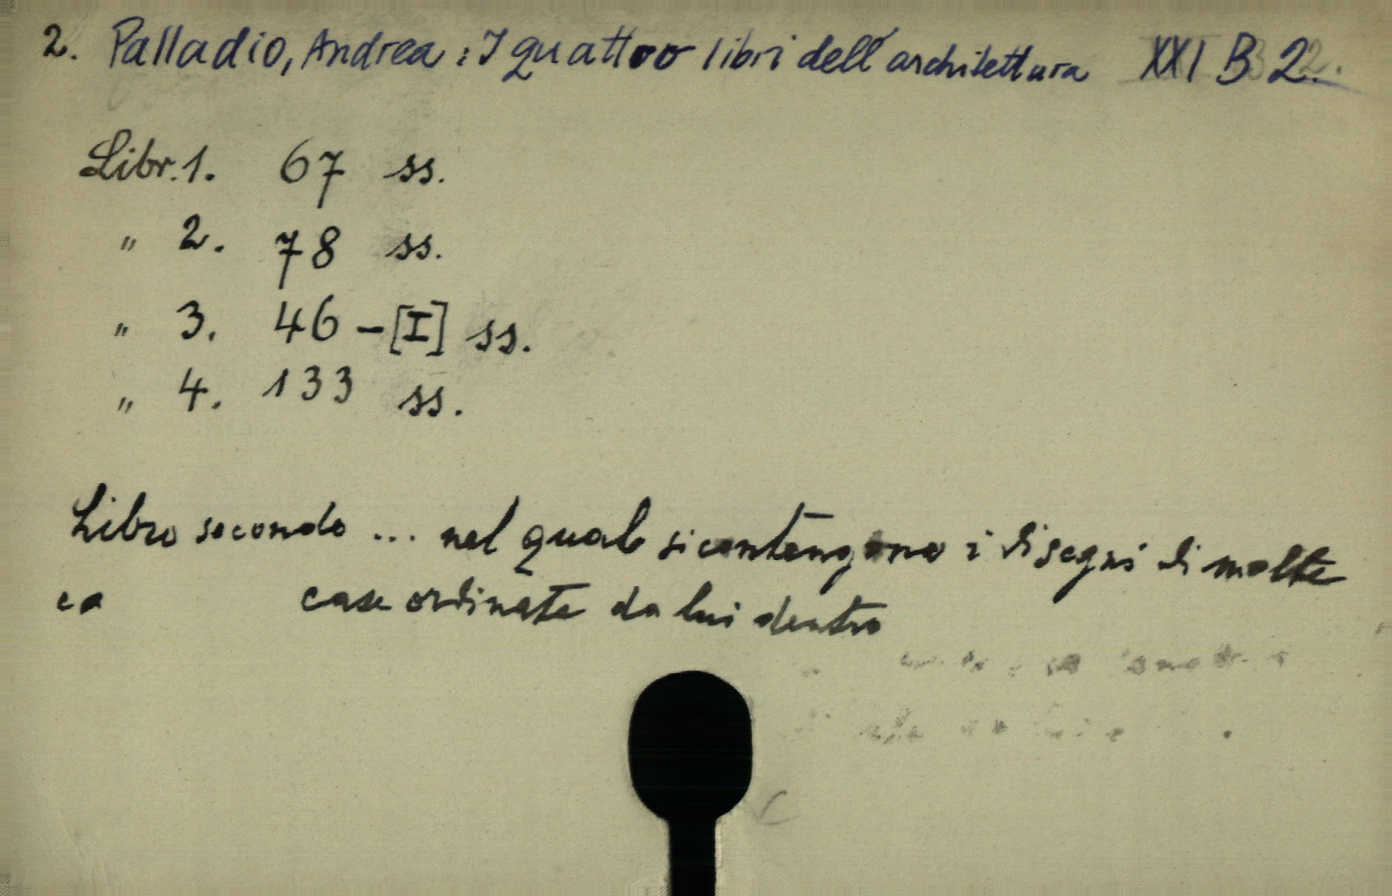 2. Palladio, Andrea: I quattro libri dell'architettura XXI B 2.
Libr. 1. 67 ss.
" 2. 78 ss.
" 3. 46-[I] ss.
" 4. 133 ss.
Libro secondo ... nel quale si contengono i disegni di molte
ca case ordinate da lui dentro